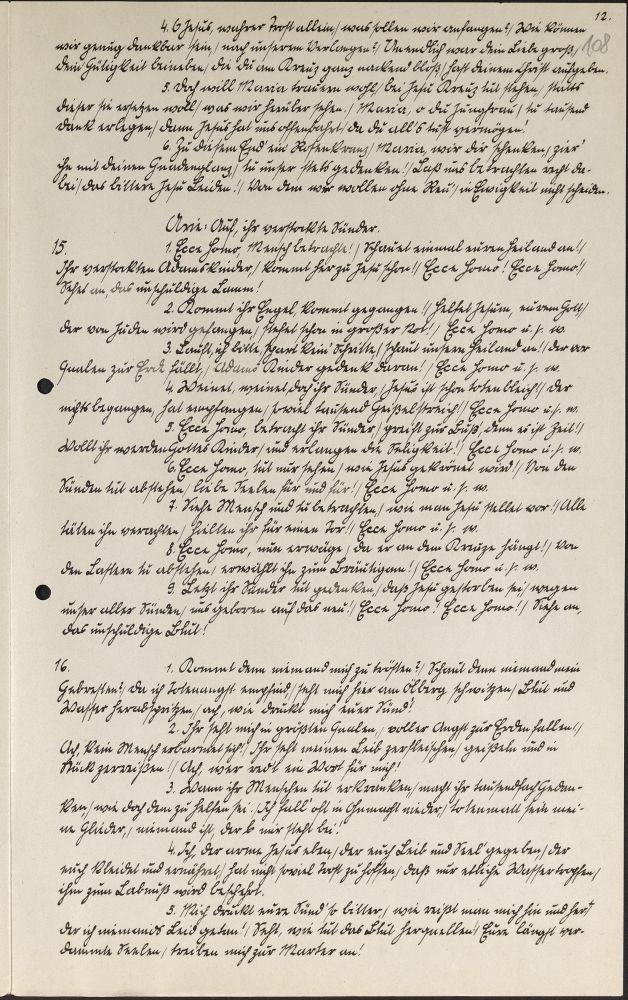 12.
108
4. O Jesus, wahrer Trost allein,/ was sollen wir anfangen?/ Wie können
wir genug dankbar sein,/ nach unserem Verlangen?/ Unendlich war dein Liebe groß,/
dein Gütigkeit beineben,/ die du am Kreuz ganz nackend bloß,/ hast deinem Christ aufgeben.
5. Doch will Maria trauern wohl,/ bei Jesu Kreuz tut stehen,/ statts
dieser sie ersetzen woll,/ was wir herüber sehen./ Maria, o du Jungfrau,/ tu tausend
Dank erlegen,/ dann Jesus hat uns offenbahrt,/ da du all's tust vermögen!
6. Zu diesem End' ein Rosenkranz,/ Maria, wir dir schenken,/ zier'
ihn mit deinen Gnadenglanz,/ tu unser stets gedenken!/ Laß uns betrachten recht da-
bei,/ das bittere Jesu Leiden!/ Von dem wir wollen ohne Reu,/ in Ewigkeit nicht scheiden.
Arie: Auf, ihr verstockte Sünder.
15. 1. Ecce Homo, Mensch betrachte!/ Schauet einmal euren Heiland an!/
Ihr verstockten Adamskinder,/ kommt herzu Jesu schon!/ Ecce Homo! Ecce Homo!/
Sehet an, das unschuldige Lamm!
2. Kommt ihr Engel, kommt gegangen!/ Helfet Jesum, eurem Gott,/
der von Juden wird gefangen,/ stehet schon in großer Not!/ Ecce Homo u. s. w.
3. Lauft, ich bitte, spart kein' Schritte,/ schaut unsern Heiland an!/ Der vor
Qualen zur Erde fällt,/ Adams Kinder gedenk daran!/ Ecce Homo u. s. w.
4. Weinet, weinet, doch ihr Sünder,/ Jesus ist schon totenbleich!/ Der
nichts begangen, hat empfangen,/ soviel tausend Geißelstreich!/ Ecce Homo u. s. w.
5. Ecce Homo, betracht ihr Sünder,/ greift zur Buß, denn es ist Zeit!/
Wollt ihr werden Gottes Kinder,/ und erlangen die Seligkeit!/ Ecce Homo u. s. w.
6. Ecce Homo, tut nur sehen,/ wie Jesus gekrönet wird!/ Von den
Sünden tut abstehen,/ liebe Seelen für und für!/ Ecce Homo u. s. w.
7. Siehe Mensch und tu betrachten,/ wie man Jesu stellet vor!/ Alle
täten ihn verachten,/ hielten ihn für einen Tor!/ Ecce Homo u. s. w.
8. Ecce Homo, nun erwäge,/ da er an dem Kreuze hängt!/ Von
den Lastern tu abstehen,/ erwählt ihn zum Bräutigam!/ Ecce Homo u. s. w.
9. Letzt ihr Sünder tut gedenken,/ daß Jesu gestorben sei,/ wegen
unser aller Sünden,/ uns geboren auf das neu!/ Ecce Homo! Ecce Homo!/ Siehe an,
das unschuldige Blut!
16. 1. Kommt denn niemand mich zu trösten?/ Schaut denn niemand mein
Gebresten?/ da ich Totenangst empfind,/ seht mich hier am Ölberg schwitzen,/ Blut und
Wasser herabspritzen,/ ach, wie druckt mich euer Sünd!
2. Ihr seht mich in größten Qualen,/ voller Angst zur Erden fallen!/
Ach, kein Mensch erbarmet sich!/ Ihr seht meinen Leib zerfleischen,/ geißeln und in
Stück zerreißen!/ Ach, wer redt ein Wort für mich!
3. Wann ihr Menschen tut erkranken,/ macht ihr tausendfach Gedan-
ken,/ wie doch dem zu helfen sei./ Ich fall oft in Ohnmacht nieder,/ totenmatt sein mei-
ne Glieder,/ niemand ist, der b mir steht bei!
4. Ich, der arme Jesus eben,/ der euch Leib und Seel' gegeben,/ der
euch kleidet und ernähret,/ hat nicht soviel Trost zu hoffen,/ daß nur etliche Wassertropfen,/
ihm zum Labnuß wird beschehrt.
5. Mich druckt eure Sünd' so bitter,/ wie reißt man mich hin und her,/
der ich niemands Leid getan!/ Seht, wie tut das Blut herquellen!/ Eure längst ver-
dammte Seelen,/ treiben mich zur Marter an!